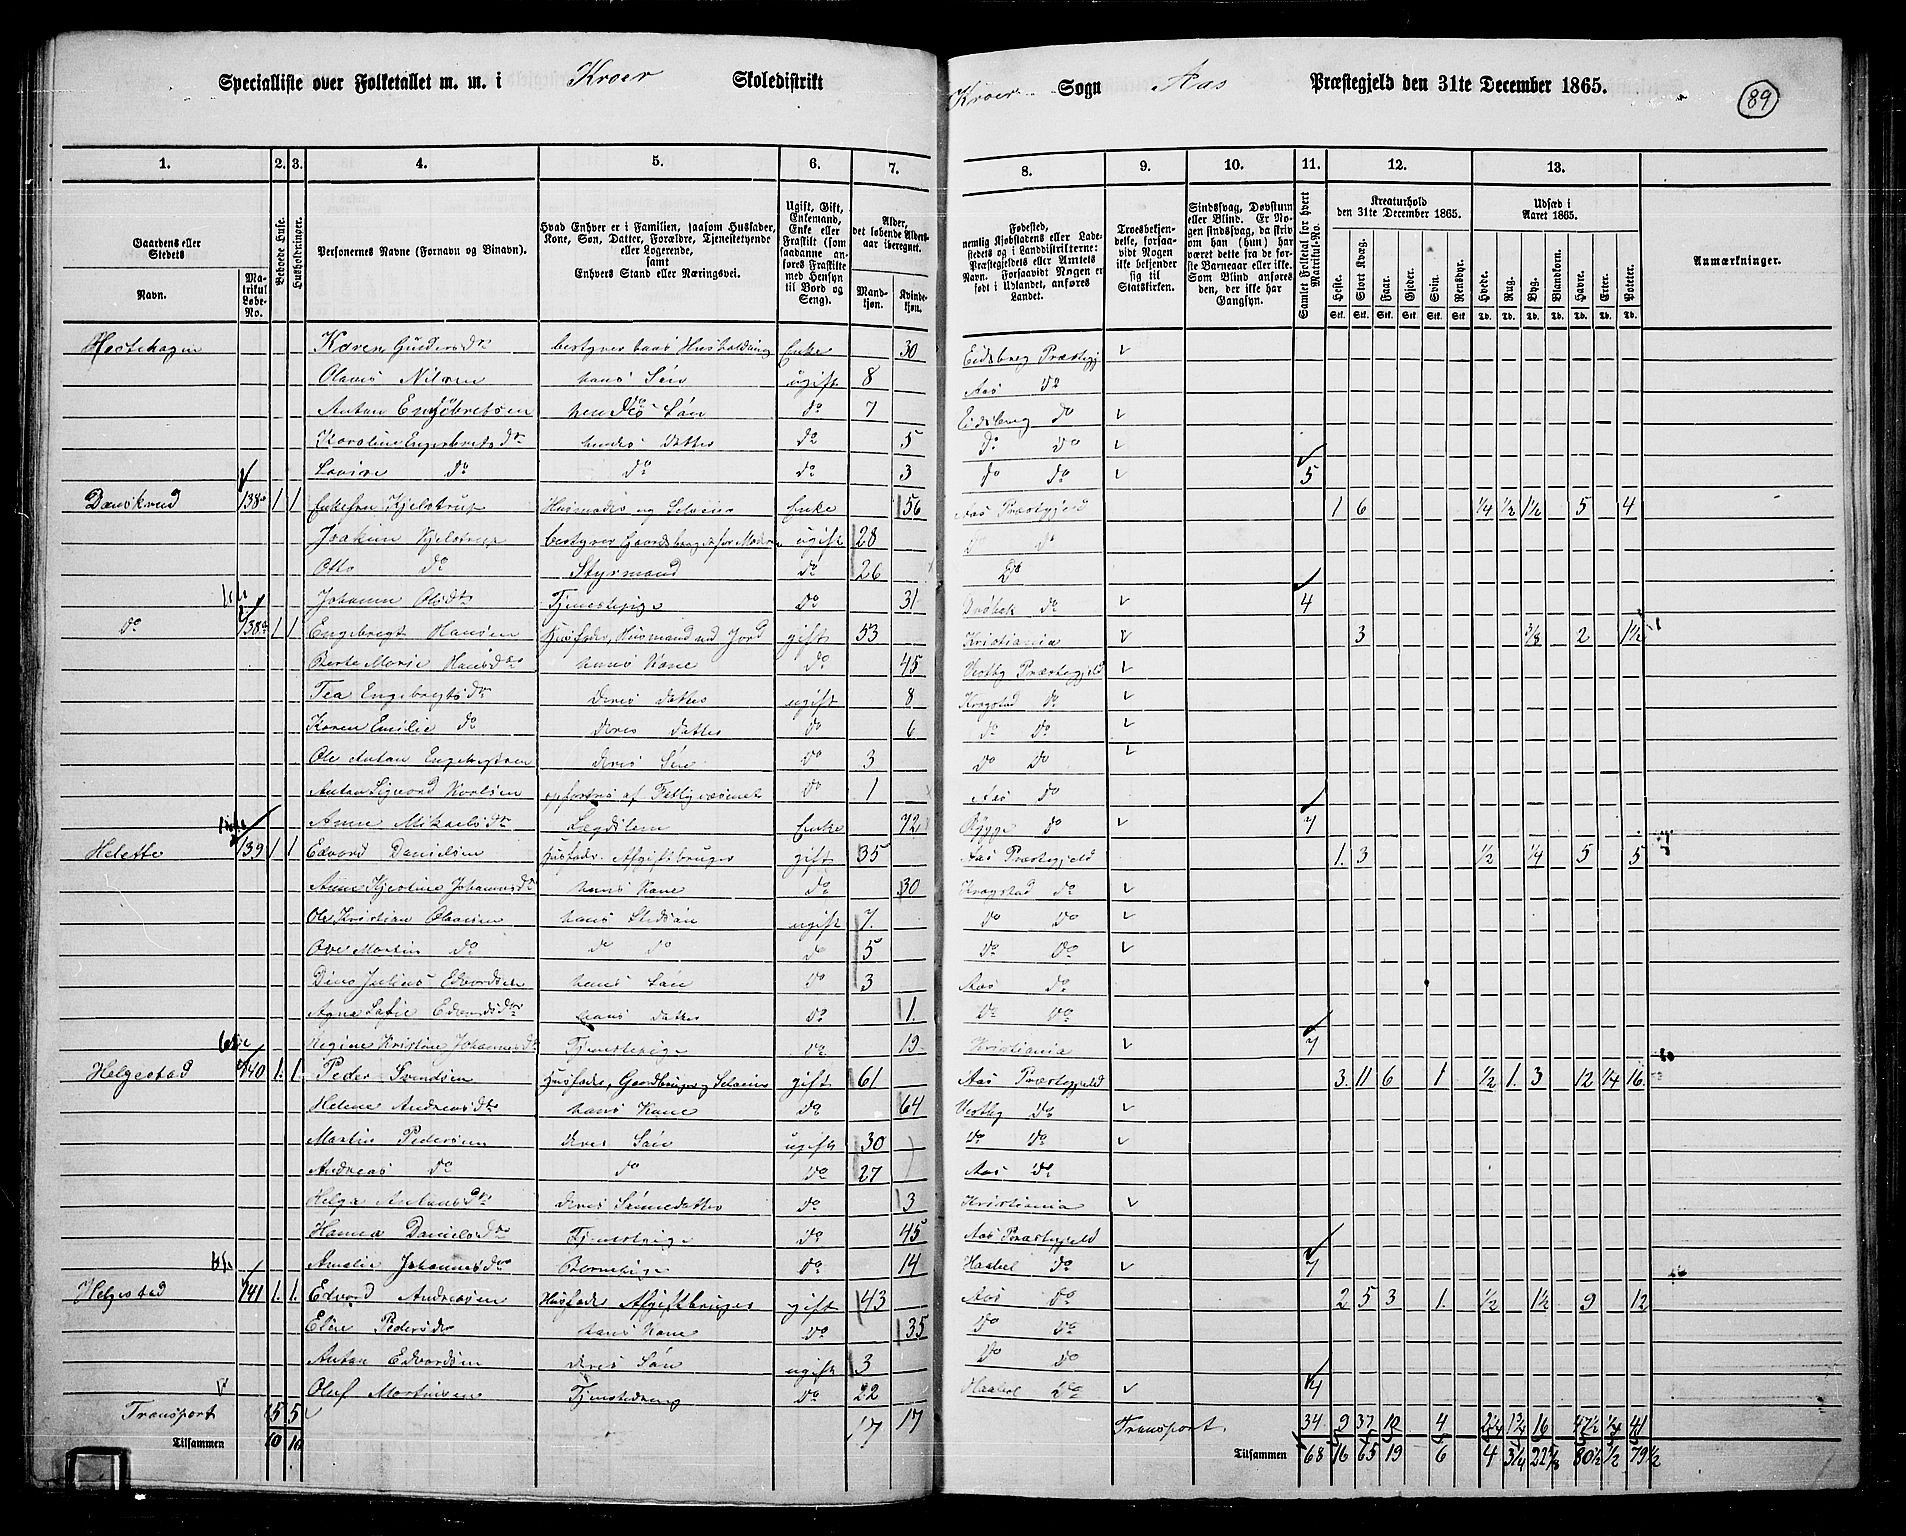 Specialliste over Folketallet m. m. i Kroer Skoledistrikt Kroer Sogn Aas Præstegjeld den 31te December 1865. 89
1. 2. 3. 4. 5. 6. 7. 8. 9. 10. 11. 12. 13.
Gaardens eller Stedets Navn. Matrikul Løbe-No. Beboede Huse. Husholdninger. Personernes Navne (Fornavn og Binavn). Hvad Enhver er i Familien, saasom Husfader, Kone, Søn, Datter, Forældre, Tjenestetyende eller Logerende, samt Enhvers Stand eller Næringsvei. Ugift, Gift, Enkemand, Enke eller Fraskilt (som saadanne anføres Fraskilte med Hensyn til Bord og Seng). Alder, det løbende Aldersaar iberegnet. Mandkjøn. Kvindekjøn. Fødested, nemlig Kjøbstadens eller Ladestedets og i Landdistrikterne: Præstegjeldets eller Amtets Navn. Forsaavidt Nogen er født i Udlandet, anføres Landet. Troesbekjendelse, forsaavidt Nogen ikke bekjender sig til Statskirken. Sindssvag, Døvstum eller Blind. Er Nogen sindssvag, da skrives om han (hun) har været dette fra de første Barneaar eller ikke. Som Blind anføres den, der ikke har Gangsyn. Samlet Folketal for hvert Matrikul-No. Kreaturhold den 31te December 1865. Heste. Stort Kvæg. Faar. Gjeder. Svin. Rensdyr. Udsæd i Aaret 1865. Hvede. Rug. Byg. Blandkorn. Havre. Erter. Poteter. Anmærkninger.
Stk. Stk. Stk. Stk. Stk. Stk. Td. Td. Td. Td. Td. Td. Td.
Hestehagen Karen Gundersdr bestyrer hans Husholdning Enke 30 Eidsberg Præstegj
Olaves Nilsen hans Søn ugift 8 Aas do
Anton Engebretsen hendes Søn do 7 Eidsberg do
Karoline Engebretsdr hendes Datter do 5 do do
Lovise do do do 3 do do 5
Danskerud 138 1 1 Enkefru Kjelstrup Husmoder og Selveier Enke 56 Aas Præstegjeld 1 6 1/4 1/2 1 1/2 5 4
Joakim Kjelstrup bestyrer Gaardsbruget for Moderen ugift 28 do do
Otto do Styrmand do 26 do
Johanne Olsdr Tjenestepige do 31 Drøbak do 4
do 138 1 1 Engebregt Hansen Husfader, Husmand med Jord gift 53 Kristiania 3 3/8 2 1 1/2
Berte Marie Hansdr hans Kone do 45 Vestby Præstegjeld
Tea Engebregtsdr deres Datter ugift 8 Kragstad do
Karen Emilie do deres Datter do 6 do do
Ole Anton Engebregtsen deres Søn do 3 do do
Anton Sigvard Karlsen opfostres af Fattigvæsenet do 1 Aas do
Anne Mikaelsdr Lægdslem Enke 72 Rygge do 7
Helette 139 1 1 Edvard Danielsen Husfader Afgiftbruger gift 35 Aas Præstegjeld 1. 3 1/2 1/4 5 5
Anne Kjerstine Johannesdr hans Kone do 30 Kragstad do
Ole Kristian Olavsen hans Stedsøn ugift 7. do do
Ove Martin do do do do 5 do do
Dines Julius Edvardsen hans Søn do 3 Aas do
Agna Sofie Edvardsdr hans Datter do 1. do do
Regine Kristine Johannesdr Tjenestepige do 19 Kristiania 7
Helgestad 140 1. 1. Peder Svendsen Husfader, Gaardbruger og Selveier gift 61 Aas Præstegjeld 3. 11 6 1 1/2 1. 3 12 1/4 16
Helene Andreasdr hans Kone do 64 Vestby do
Martin Pedersen deres Søn ugift 30 do do
Andreas do do do 27 Aas do
Helga Antonsdr deres Sønnedatter do 3 Kristiania
Hanna Danielsdr Tjenestepige do 45 Aas Præstegjeld
Amalie Johannesdr Barnepige do 14 Haabel do 7
Helgestad 141 1. 1. Edvard Andreasen Husfader Afgiftbruger gift 43 Aas do 2 5 3 1. 1/2 1 1/2 9 12
Eline Pedersdr hans Kone do 35 do do
Anton Edvardsen deres Søn ugift 3 do do
Oluf Martinsen Tjenestedreng do 22 Haabel do 4
Transport 5 5 17 17 Transport 34 9 37 10 4 2 1/4 1 3/4 16 47 1/2 1/4 41
Tilsammen 10 10 Tilsammen 68 16 65 19 6 4 3 1/4 22 5/8 80 1/2 1/2 79 1/2